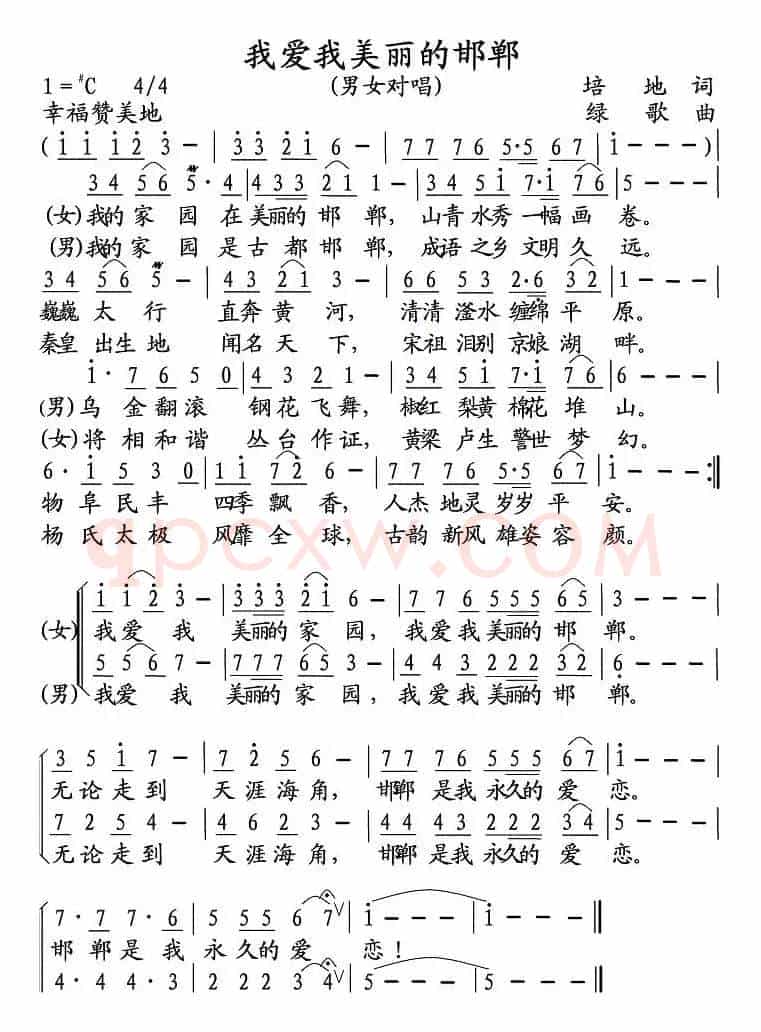 我爱我美丽的邯郸
1=#C 4/4 (男女对唱) 培地词
幸福赞美地 绿歌曲
(i i i 2 3 - | 3 3 2 i 6 - | 7 7 7 6 5·5 6 7 | i - - -)|
3 4 5 6 5·4 | 4 3 3 2 1 1 - | 3 4 5 i 7·i 7 6 | 5 - - - |
(女)我的家园在美丽的邯郸，山青水秀一幅画卷。
(男)我的家园是古都邯郸，成语之乡文明久远。
3 4 5 6 5 - | 3 4 2 1 2 - | 6 6 5 3 2·6 3 2 | 1 - - - |
巍巍太行直奔黄河，清清滏水缠绵平原。
秦皇出生地闻名天下，宋祖泪别京娘湖畔。
i·7 6 5 0 | 4 3 2 3 - | 3 4 5 i 7·i 7 6 | 5 - - - |
(男)乌金翻滚钢花飞舞，椒红梨黄棉花堆山。
(女)将相和谐丛台作证，黄粱卢生警世梦幻。
6·i 5 3 0 | i i 7 2 6 - | 7 7 7 6 5·5 6 7 | i - - - :|
物阜民丰四季飘香，人杰地灵岁岁平安。
杨氏太极风靡全球，古韵新风雄姿容颜。
qpcxw.com
i i 2 3 - | 3 3 3 2 i 6 - | 7 7 7 6 5 5 5 6 5 | 3 - - - |
(女)我爱我美丽的家园，我爱我美丽的邯郸。
5 5 6 7 - | 7 7 7 6 5 3 - | 4 4 4 3 2 2 2 3 2 | 6 - - - |
(男)我爱我美丽的家园，我爱我美丽的邯郸。
3 5 i 7 - | 7 2 6 5 - | 7 7 7 6 5 5 5 6 7 | i - - - |
无论走到天涯海角，邯郸是我永久的爱恋。
7 2 5 4 - | 4 6 2 1 - | 4 4 4 3 2 2 2 3 4 | 5 - - - |
无论走到天涯海角，邯郸是我永久的爱恋。
7·7 7·6 | 5 5 5 6 7 ∨ | i - - - | i - - - ‖
邯郸是我永久的爱恋！
4·4 4·3 | 2 2 2 3 4 ∨ | 5 - - - | 5 - - - ‖